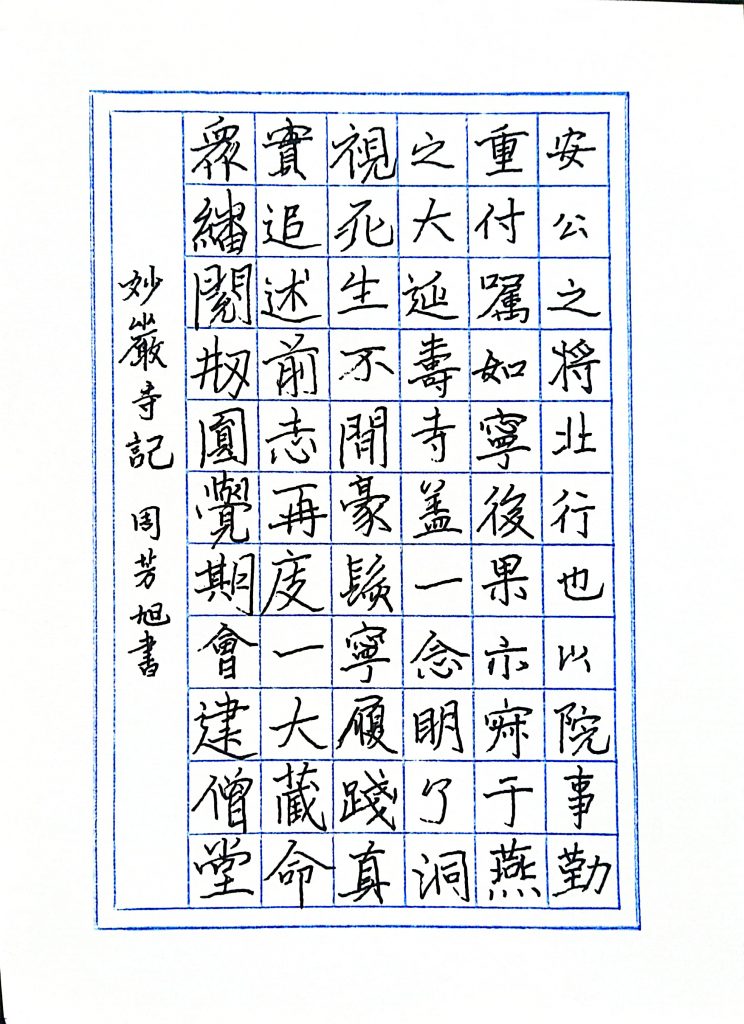 安公之将北行也以院事勤
重付嘱如寧後果亦寂于燕
之大延壽寺盖一念明了洞
視死生不間豪髮寧履踐真
實追述前志再度一大蔵命
衆繙閱刱圓覺期會建僧堂
妙巖寺記 周芳旭書